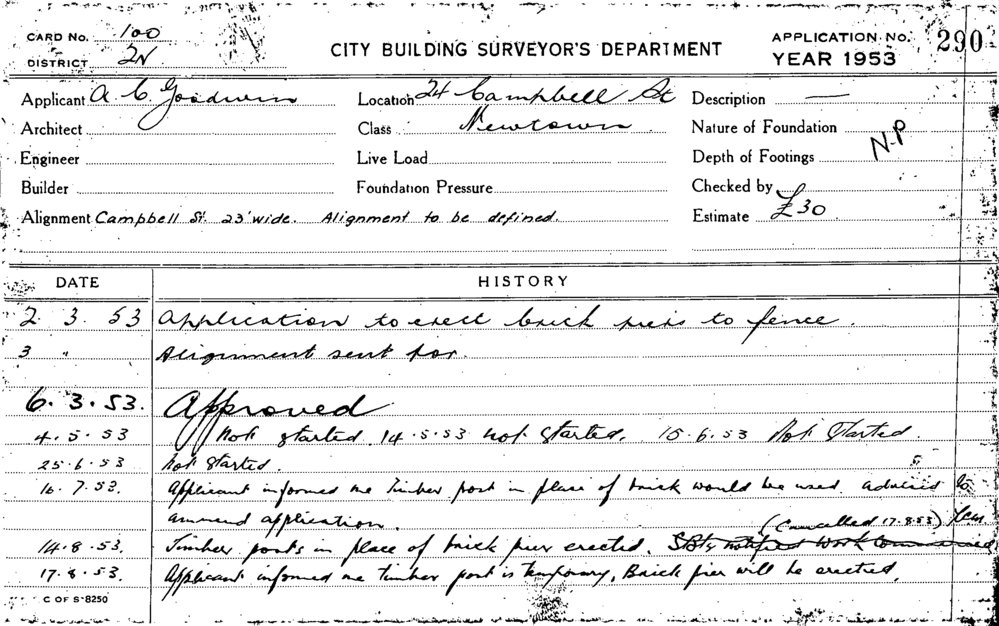 CARD No. 100
DISTRICT 2N
CITY BUILDING SURVEYOR'S DEPARTMENT
APPLICATION No. 290
YEAR 1953
Applicant A. C. Goodwin Location 24 Campbell St Description —
Architect Class Newtown Nature of Foundation N.P
Engineer Live Load Depth of Footings
Builder Foundation Pressure Checked by
Alignment Campbell St. 23' wide. Alignment to be defined. Estimate £30
DATE HISTORY
2. 3. 53 Application to erect brick piers to fence.
3 " Alignment sent for.
6. 3. 53. Approved
4. 5. 53 Not started. 14.5.53 not started. 15.6.53 Not Started.
25.6.53 Not Started.
16. 7. 53. Applicant informed me timber post in place of brick would be used. advised to
ammend application.
(Cancelled 17.8.53)
14.8.53. Timber posts in place of brick pier erected. notified work commenced
17.8.53. Applicant informed me timber post is temporary, Brick pier will be erected.
C OF S-8250